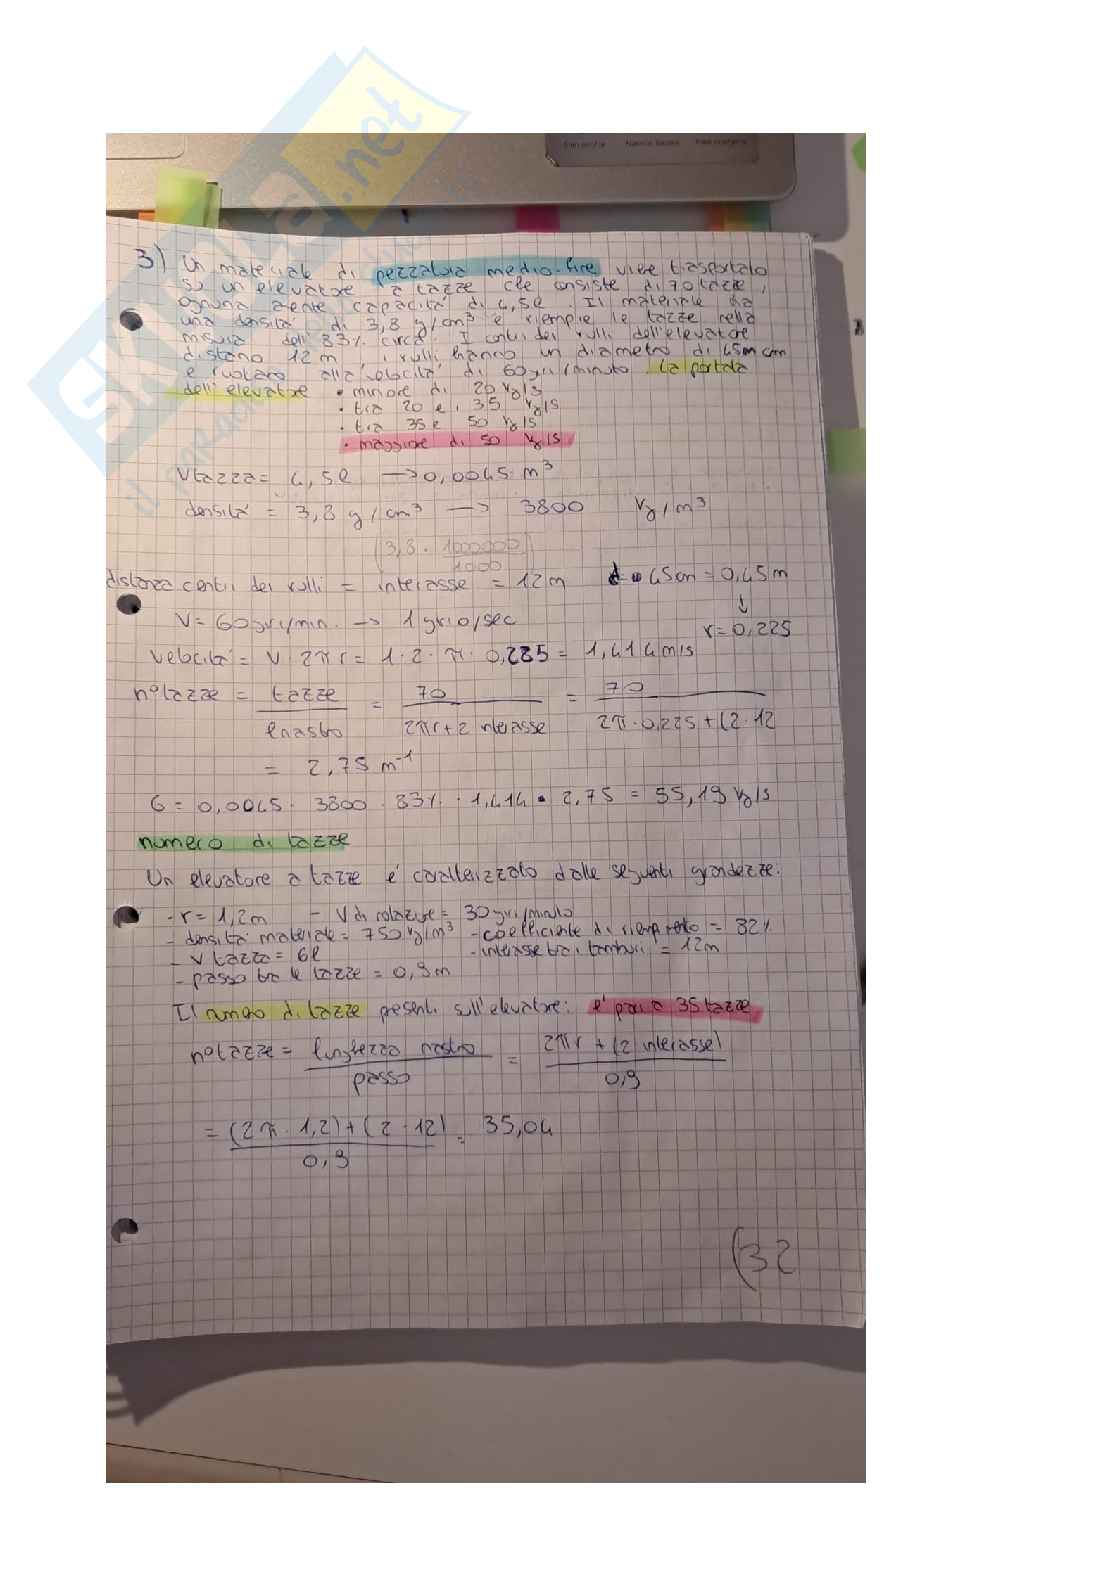 3) Un materiale di pezzatura medio-fine viene trasportato
su un elevatore a tazze che consiste di 70 tazze,
ognuna avente capacità di 4,5l. Il materiale ha
una densità di 3,8 g/cm³ e riempie le tazze nella
misura dell'83% circa. I centri dei rulli dell'elevatore
distano 12 m, i rulli hanno un diametro di 45 cm
e ruotano alla velocità di 60 giri/minuto. La portata
dell'elevatore • minore di 20 kg/s
• tra 20 e i 35 kg/s
• tra 35 e 50 kg/s
• maggiore di 50 kg/s
Vtazza = 4,5l → 0,0045 m³
densità = 3,8 g/cm³ → 3800 kg/m³
(3,8 · 1000000/1000)
distanza centri dei rulli = interasse = 12m d = 45cm = 0,45m
↓
V = 60giri/min. → 1 giro/sec r = 0,225
velocità = v · 2πr = 1 · 2 · π · 0,225 = 1,414 m/s
n°tazze = tazze / lnastro = 70 / 2πr + 2 interasse = 70 / 2π · 0,225 + (2 · 12
= 2,75 m⁻¹
G = 0,0045 · 3800 · 83% · 1,414 • 2,75 = 55,19 kg/s
numero di tazze
Un elevatore a tazze è caratterizzato dalle seguenti grandezze:
- r = 1,2m - V di rotazione = 30giri/minuto
- densità materiale = 750 kg/m³ - coefficiente di riempimento = 82%
- V tazza = 6l - interasse tra i tamburi = 12m
- passo tra le tazze = 0,9m
Il numero di tazze presenti sull'elevatore: è pari a 35 tazze
n°tazze = lunghezza nastro / passo = 2πr + (2 interasse) / 0,9
= (2π · 1,2) + (2 · 12) / 0,9 = 35,04
(32
SKUOLA.net